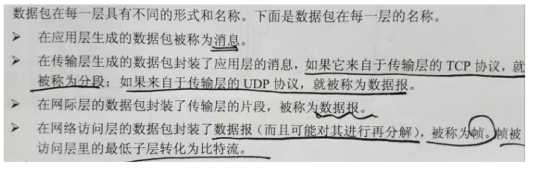 数据包在每一层具有不同的形式和名称。下面是数据包在每一层的名称。
➢ 在应用层生成的数据包被称为消息。
➢ 在传输层生成的数据包封装了应用层的消息,如果它来自于传输层的 TCP 协议,就
被称为分段;如果来自于传输层的 UDP 协议,就被称为数据报。
➢ 在网际层的数据包封装了传输层的片段,被称为数据报。
➢ 在网络访问层的数据包封装了数据报(而且可能对其进行再分解),被称为帧。帧被
访问层里的最低子层转化为比特流。